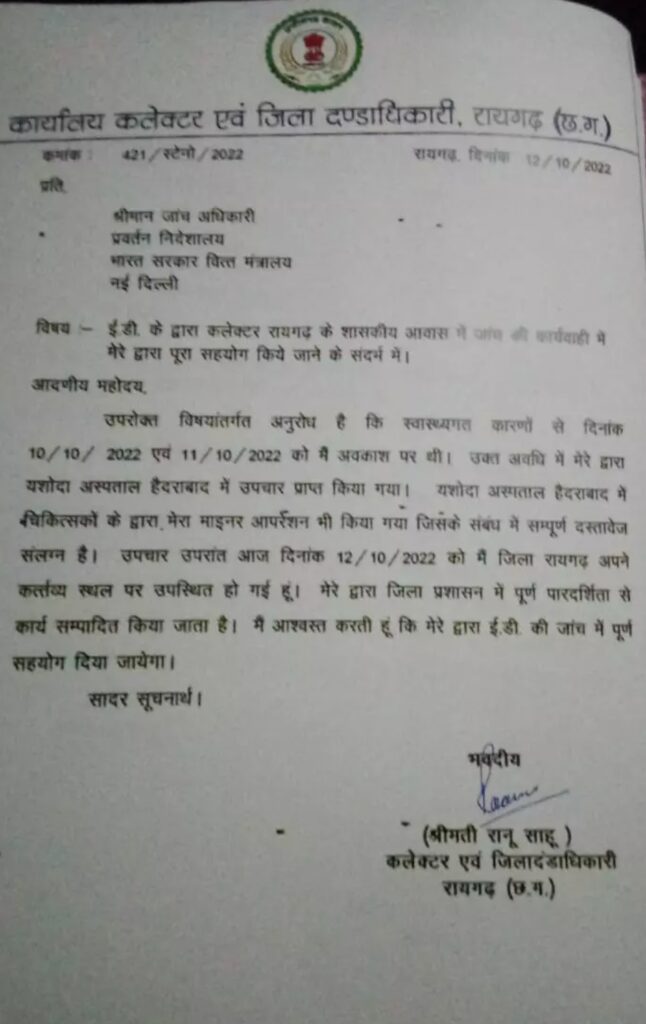 कार्यालय कलेक्टर एवं जिला दण्डाधिकारी, रायगढ़ (छ.ग.)
क्रमांक : 421/स्टेनो/2022 रायगढ़, दिनांक 12/10/2022
प्रति,
श्रीमान जांच अधिकारी
प्रवर्तन निदेशालय
भारत सरकार वित्त मंत्रालय
नई दिल्ली
विषय :- ई.डी. के द्वारा कलेक्टर रायगढ़ के शासकीय आवास में जांच की कार्यवाही में
मेरे द्वारा पूरा सहयोग किये जाने के संदर्भ में।
आदणीय महोदय,
उपरोक्त विषयांतर्गत अनुरोध है कि स्वास्थ्यगत कारणों से दिनांक
10/10/ 2022 एवं 11/10/2022 को मैं अवकाश पर थी। उक्त अवधि में मेरे द्वारा
यशोदा अस्पताल हैदराबाद में उपचार प्राप्त किया गया। यशोदा अस्पताल हैदराबाद में
चिकित्सकों के द्वारा मेरा माइनर आपरेशन भी किया गया जिसके संबंध में सम्पूर्ण दस्तावेज
संलग्न है। उपचार उपरांत आज दिनांक 12/10/2022 को मैं जिला रायगढ़ अपने
कर्त्तव्य स्थल पर उपस्थित हो गई हूं। मेरे द्वारा जिला प्रशासन में पूर्ण पारदर्शिता से
कार्य सम्पादित किया जाता है। मैं आश्वस्त करती हूं कि मेरे द्वारा ई.डी. की जांच में पूर्ण
सहयोग दिया जायेगा।
सादर सूचनार्थ।
भवदीय
(श्रीमती रानू साहू )
कलेक्टर एवं जिलादंडाधिकारी
रायगढ़ (छ.ग.)